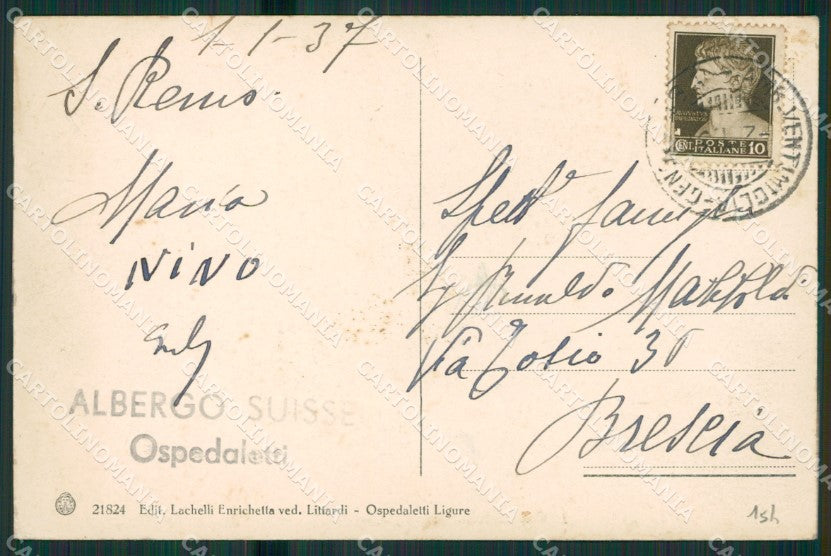 1-1-37
S. Remo.
Maria
NINO
ALBERGO SUISSE
Ospedaletti
21824 Edit. Lachelli Enrichetta ved. Littardi - Ospedaletti Ligure
AUGUSTUS
POSTE
CENT. ITALIANE 10
VENTIMIGLIA-GEN
Spett. famiglia
Via Tosio 30
Brescia
1sh
CARTOLINOMANIA